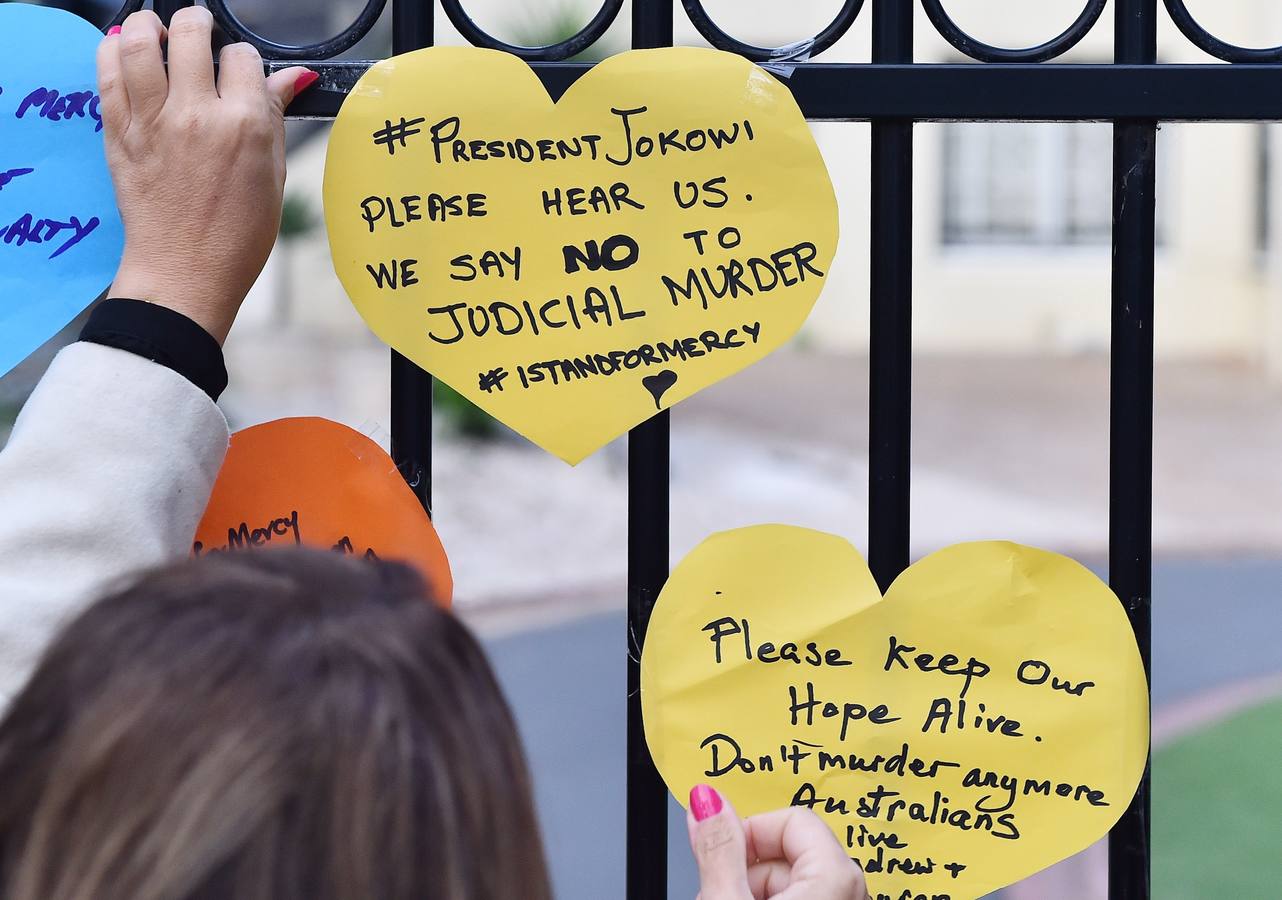 MERC
ALTY
#PRESIDENTJOKOWI
PLEASE HEAR US.
WE SAY NO TO
JUDICIAL MURDER
#ISTANDFORMERCY
Mercy
Please Keep Our
Hope Alive.
Don't murder anymore
Australians
live
drew +